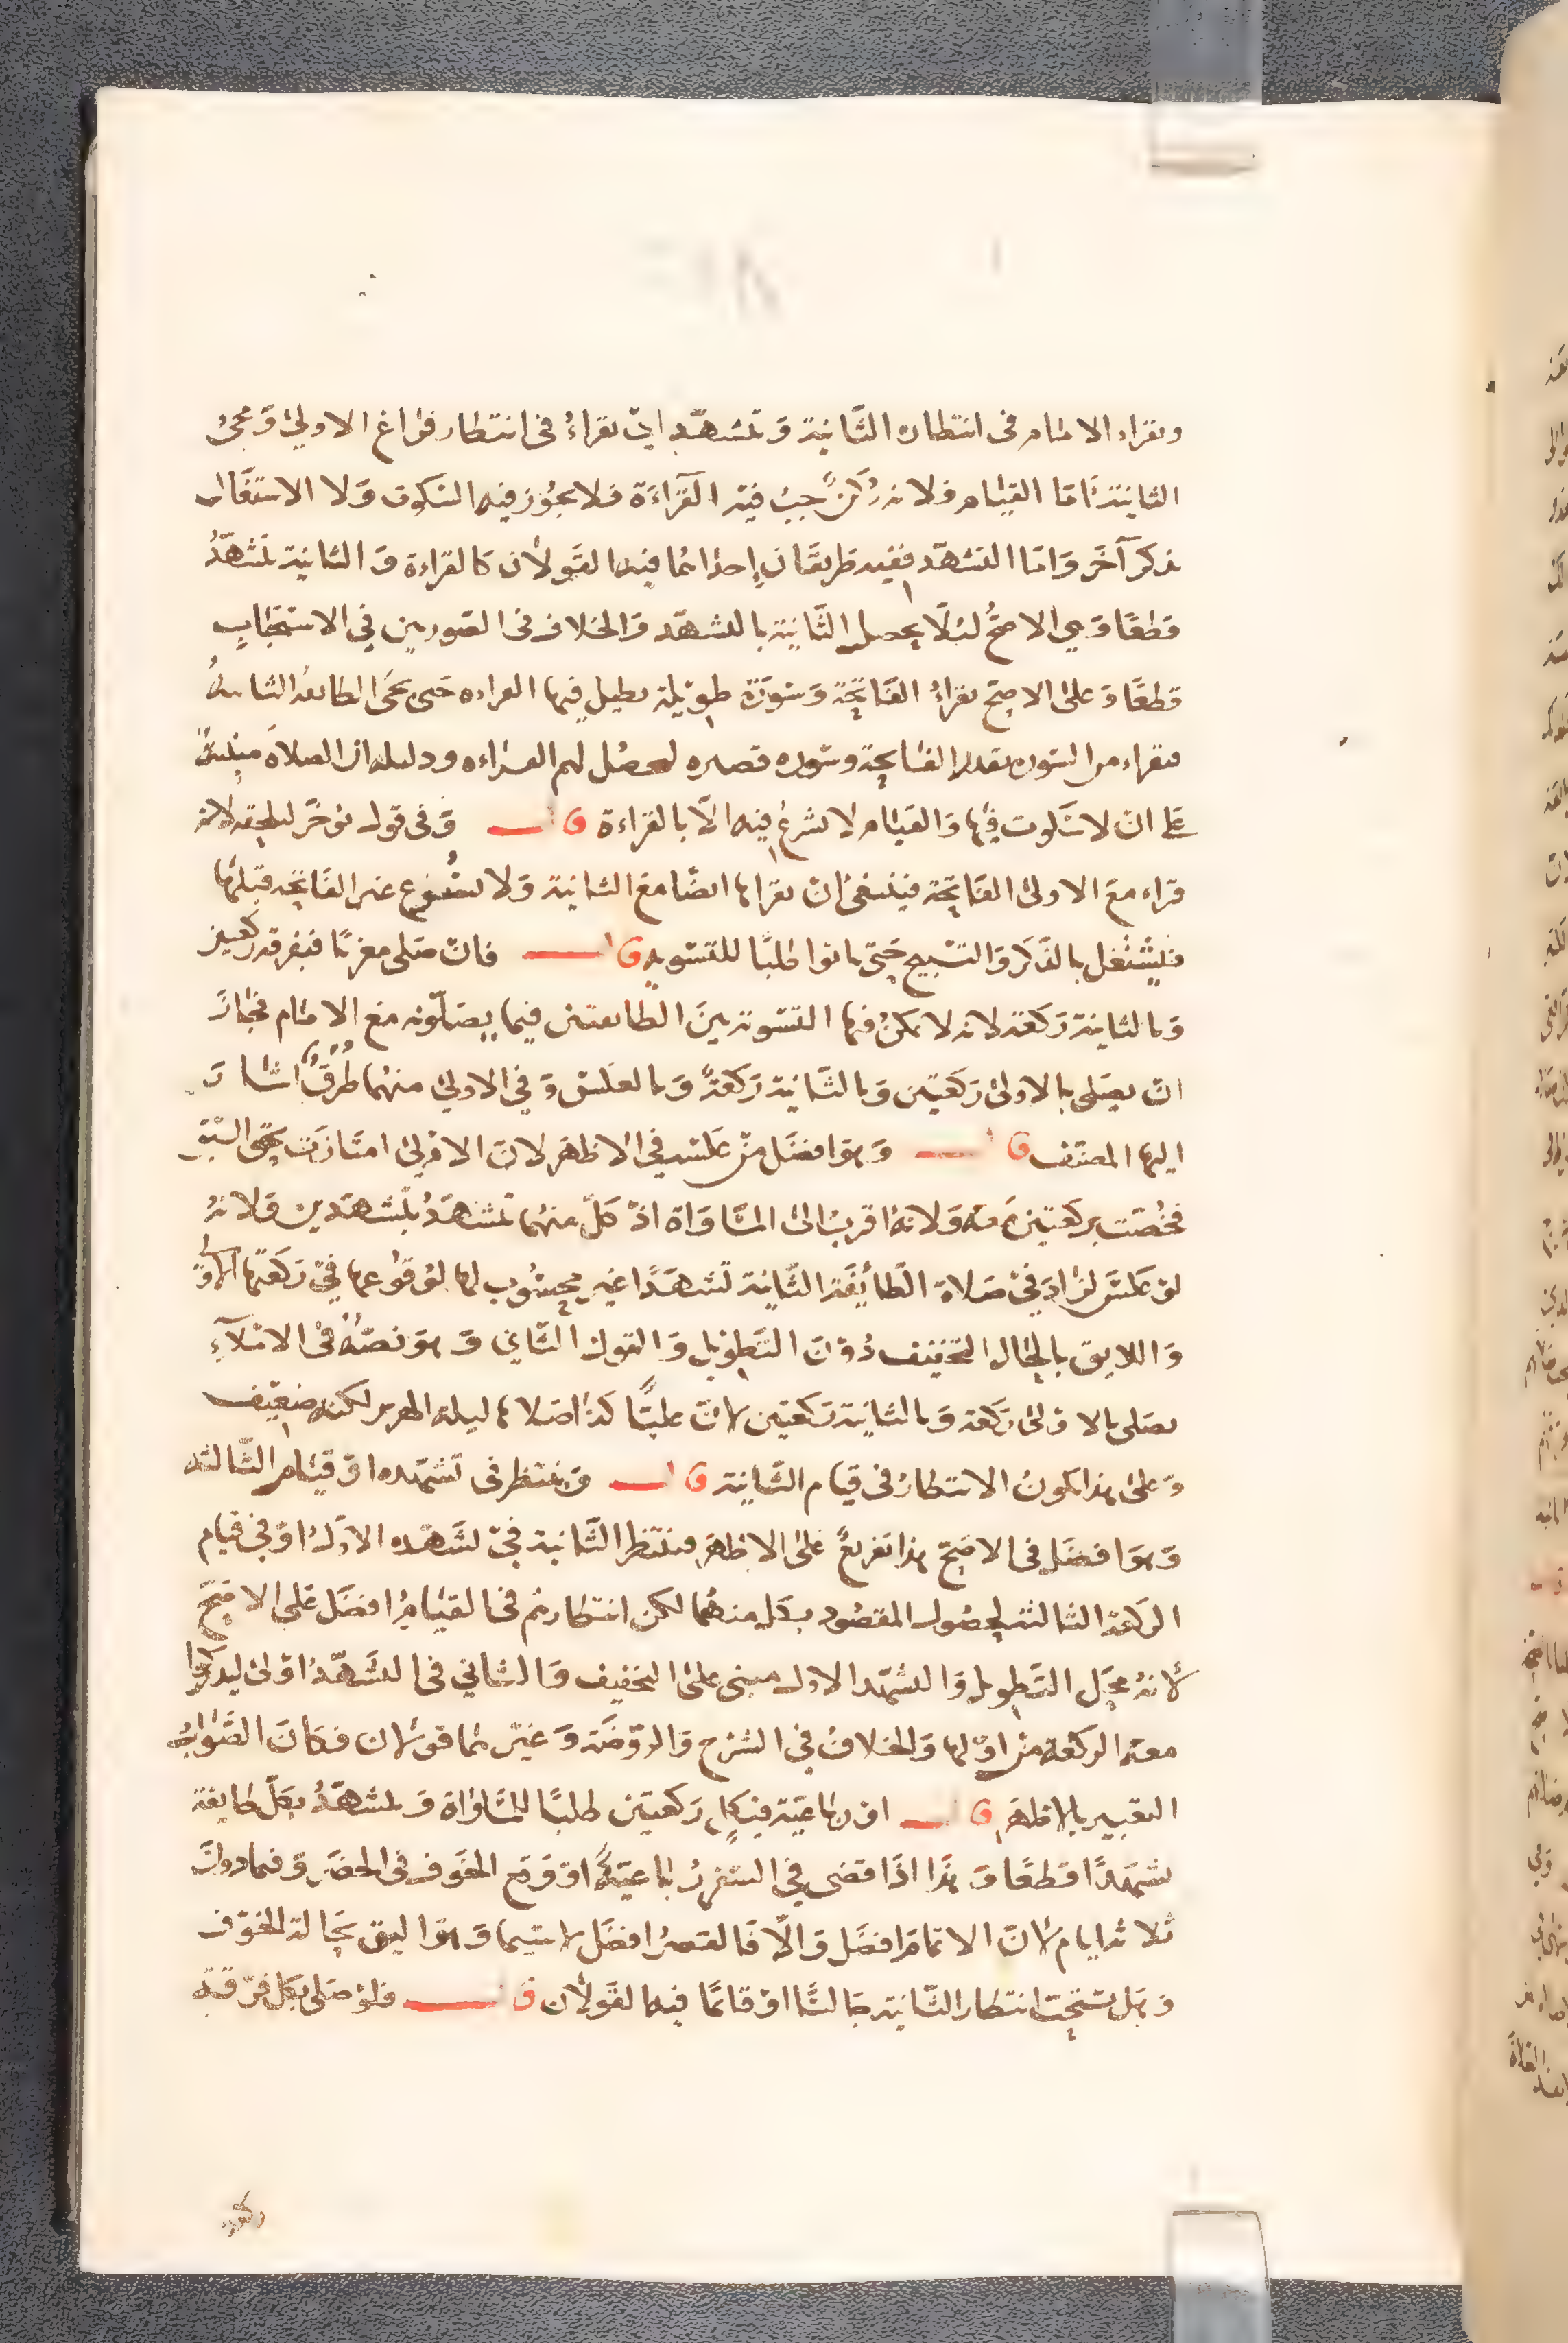 ويقراء الامام فى انتظاره الثَّانية وَتشهّد اي يقراءُ فى انتظار فراغ الاولىٰ وَمجئ
الثانية امَّا القيام فلانه رُكنٌ يجبُ فيه القرَآءَة فلا يجُوز فيه السّكوت وَلا الاشتغَال
بذكر آخَر وَامّا التشهّد ففيه طريقَان إحداهُما فيه القَولان كالقراءة وَالثانية تشهّدُ
قطعًا وَهي الاصحُّ لئلَّا يحصل الثَّانية بالتشهّد وَالخلاف فى الصّورتين فِي الاستحبَابِ
قطعًا وَعلىٰ الاصحّ يقراءُ الفَاتحَة وَسُورَة طوِيْلة يطيل فيها القراءه حَتى تجَى الطايفه الثانيةُ
فيقراء من السّوره بقدر الفَاتحة وسُوره قصيره لتحصُل لهم القراءه ودليله ان الصلاة مبنيةٌ
عَلى انّ لا سَكوت فيْها وَالقيَام لا يُشرعُ فيه الَّا بالقراءة قال وَفى قول يؤخّر لتلحقه لانه
قراء معَ الاولىٰ الفَاتحَة فينبغىٰ ان يقراها ايضًا معَ الثانية وَلا يشُرع غير الفَاتحه قبلهَا
فيشْتغل بالذّكر وَالتسْبيح حَتى ياتوا طلبًا للتسْويه قال فانْ صَلى مغربًا فبفرقه ركعتين
وَبالثانية رَكعَة لانه لا يمكنُ فيها التسْوية بَين الطايفتين فيما يصَلّونه مَع الامَام فجَازَ
انْ يصَلى بالاولىٰ رَكعَتَين وَبالثَّانية رَكعَةً وَبالعكسْ وَفي الاولىٰ منهما طُرُقٌ اشَارَ
اليها المصنّف قال وَهوَ افضَل منْ عَكسْه في الاظهَر لانّ الاوْلىٰ امتَازَت بحَق السّبْق
فخُصّت بركعتين مَعه وَلانهُ اقربُ الىٰ المسَاوَاة اذْ كلّ منهُما تشهّدُ بتَشهّدين وَلانهُ
لوْ عَكسَ لزَادَ فىْ صَلاة الطَّائِفَة الثَّانية تَشهّدًا غير محسُوب لها لوقوُعها فىْ رَكعَتها الاولى
وَاللايق بالحَال التخفيف دُوْنَ التَّطوْيل وَالقول الثَّاني وَهوَ نصّهُ فىْ الامْلآءِ
يصَلى بالاوْلىٰ رَكعَة وَبالثانية رَكعَتين لانّ عليًّا كذا صَلاها ليلة الهرير لكنّهُ ضعيْف
وَعلىٰ هذا يكونُ الانتظارُ فى قيام الثَّانية قال وَينتظر فى تشهّده اوْ قيَام الثّالثه
وَهوَ افضَل فى الاصَحّ هذا تفريعٌ عَلىٰ الاظهَر فينتظر الثَّانية فىْ تَشَهّده الاوّل اوْ فيْ قيام
الرَكعَة الثالثة لحصُول المقصُود بكل منهُما لكن انتظارهُم فى القيَام افضَل عَلىٰ الاصَحّ
لانهُ محَل التَّطويل وَالتشهّد الاول مبنى عَلىٰ التخفيف وَالثاني فى التَّشَهّدُ اوْلىٰ ليدركُوا
معهُ الركعة من اوّلها وَالخلافُ فيْ الشرْح وَالرّوْضَة وَغيْرهما قوْلان فكَانَ الصَّوابُ
التعبير بالاظهَر قال اوْ ربَاعيّة فبكلٍ رَكعتين طلبًا للمسَاوَاة وَتشهّدُ بكلّ طايفة
تشهّدًا قطعًا وَهذَا اذَا قضى فيْ السّفر رُبَاعيّةً اوْ وَقع الخوَف فى الحضَر وَفيما دونَ
ثلاثه ايام لانّ الاتمامَ افضَل وَالّا فَالقصرُ افضَل لا سيّما وَهوَ اليق بحَالة الخوْف
وَهَل يسْتحبّ انتظار الثّانية جَالسًا اوْ قائمًا فيه القَولان قال فلوْ صَلى بكل فرْقةٍ
ركعة